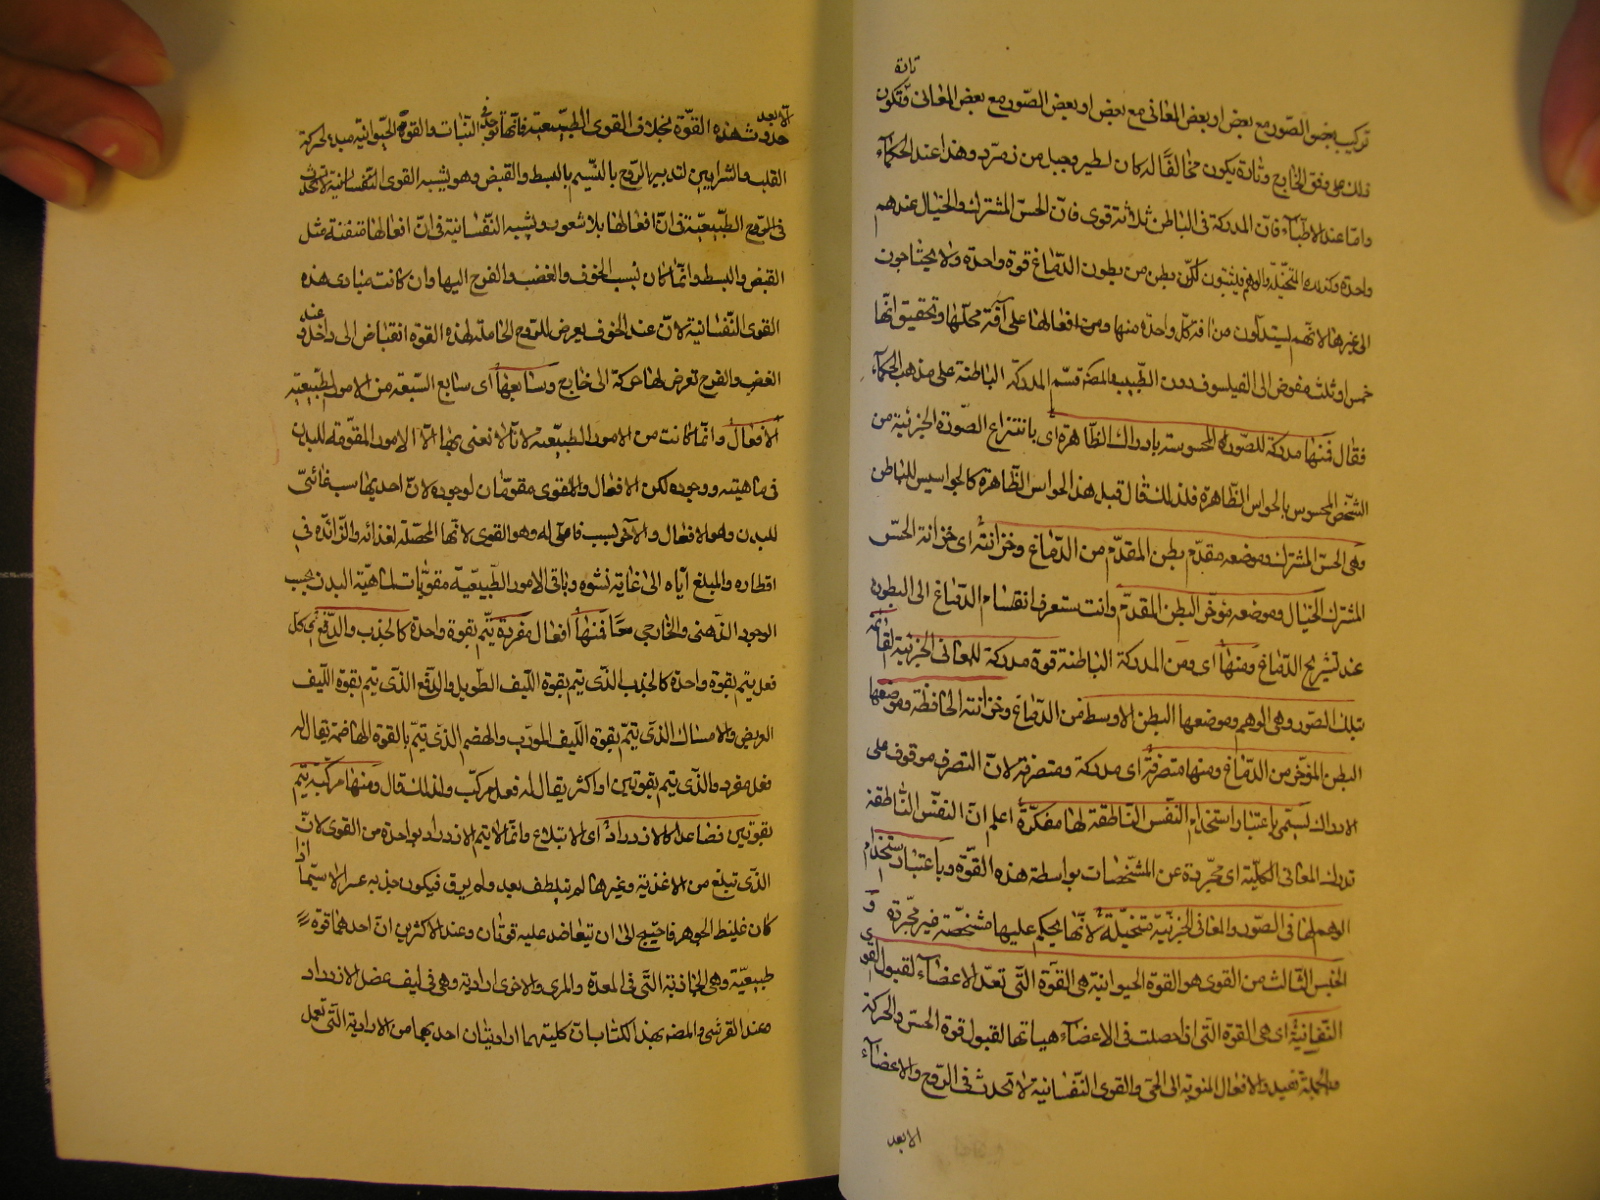 تارة
تركيب بعض الصّور مع بعض او بعض المعانى مع بعض او بعض الصّور مع بعض المعانى وتكون
ذلك على وفق الخارج وتارة يكون مخالفًا له كان لطير وجبل من زمرّد وهذا عند الحكمآء
وامّا عند الاطبّآء فانّ المدركة فى الباطن ثلاثة قوى فانّ الحسّ المشترك والخيال عندهم
واحدة وكذلك المتخيّلة والوهم فيثبتون لكلّ بطن من بطون الدّماغ قوة واحدة ولا يحتاجون
الى غيرها لانّهم يستدلّون من افة كلّ واحدة منها ومن افعالها على آفة محلّها وتحقيق انّها
خمس او ثلث مفوض الى الفيلسوف دون الطّبيب والمصَ قسّم المدركة الباطنة على مذهب الحكمآء
فقال فمنها مدركة للصّورة المحسوسة بادراك الظّاهرة اى بانتزاع الصّورة الجزئية من
الشّخص المحسوس بالحواس الظّاهرة فلذلك قال قبل هذا الحواس الظّاهرة كالجواسيس للباطن
وهى الحسّ المشترك وموضعه مقدّم بطن المقدّم من الدّماغ وخزانتهُ اى خزانة الحسّ
المشترك الخيال وموضعه مؤخّر البطن المقدّم وانت ستعرف انقسام الدّماغ الى البطون
عند تشريح الدّماغ ومنها اى ومن المدركة الباطنة قوة مدركة للمعانى الجزئية القائمة
بتلك الصّور وهى الوهم وموضعها البطن الاوسط من الدّماغ وخزانته الحافظة وموضعها
البطن المؤخّر من الدّماغ ومنها متصرّفة اى مدركة ومتصرفة لانّ التصرف موقوف على
الادراك تسمّى باعتبار استخدام النّفس النّاطقة لها مفكّرة اعلم انّ النفس النّاطقة
تدرك المعانى الكليّة اى مجرّدة عن المشخّصات بواسطة هذه القوّة وباعتبار استخدام
الوهم لها فى الصّور والمعانى الجزئيّة متخيّلة لانّها يحكم عليها مشخّصة غير مجرّدة وَ
الجنس الثّالث من القوى هو القوة الحيوانية هى القوّة الّتى تعدّ الاعضآء لقبول القوى
النّفسانيّة اى هى القوة الّتى اذا حصلت فى الاعضآء هيأتها لقبول قوة الحسّ والحركة
والاعضآء لا تحدث فى الرّوح والقوى النّفسانية
الا بعد
الا بعد
حدوث هذه القوّة بخلاف القوى الطّبيعيّة فانّها توجد فى النّبات والقوة الحيوانية مبدء حركة
القلب والشرايين لتدبير الرّوح بالنّسيم بالبسط والقبض وهو يشبه القوى النّفسانية لا تحدث
فى الرّوح الطّبيعيّة فى انّ افعالها بلا شعور ويشبه النّفسانية فى انّ افعالها متفنّنة مثل
القبض والبسط وانّما كان نسب الخوف والغضب والفرح اليها وان كانت مبادى هذه
القوى النّفسانية لانّ عند الخوف يعرض للرّوح الحاملة لهذه القوة انقباض الى داخل وعند
الغضب والفرح تعرض لها حركة الى خارج وسابعها اى سابع السّبعة من الامور الطّبيعيّة
الافعال وانّما كانت من الامور الطّبيعيّة لانّا لا نعنى بها الّا الامور المقوّمة للبدن
فى ماهيته ووجوده لكن الافعال والقوى مقوّمتان لوجوده لانّ احديها سبب غائىّ
للبدن وهو الافعال والآخر سبب فاعلى له وهو القوى لانّها المحصّلة لغذائه والزّائدة فى
اقطاره والمبلغ ايّاه الى غاية نشوه وباقى الامور الطّبيعيّة مقوّمات لماهيّة البدن بحسب
الوجود الذّهنى والخارجى معًا فمنها افعال مفردة يتّم بقوة واحدة كالجذب والدّفع اى كل
فعل يتم بقوة واحدة كالجذب الّذى يتم بقوة اللّيف الطّويل والدّفع الّذى يتم بقوة اللّيف
العريض والامساك الّذى يتمّ بقوة اللّيف المورّب والهضم الّذى يتمّ بالقوة الهاضمة يقال له
فعل مفرد والّذى يتم بقوتين او اكثر يقال له فعل مركّب ولذلك قال ومنها مركّبة يتم
بقوتين فصاعدا كالازدراد اى الابتلاع وانّما لا يتم الازدراد بواحدة من القوى لانّ
الّذى تبلع من الاغذية وغيرها لم يتلطف بعد ولم يرق فيكون جذبه عسرا لا سيّما اذا
كان غليظ الجوهر فاحتيج الى ان تتعاضد عليه قوتان وعند الاكثرين انّ احدهما قوة
طبيعيّة وهى الجاذبة الّتى فى المعدة والمرى والاخرى ارادية وهى فى ليف عضل الازدراد
وعند القرشى والمصَ بهذا الكتاب انّ كليتهما اراديتان احديهما من الارادية الّتى تعمل